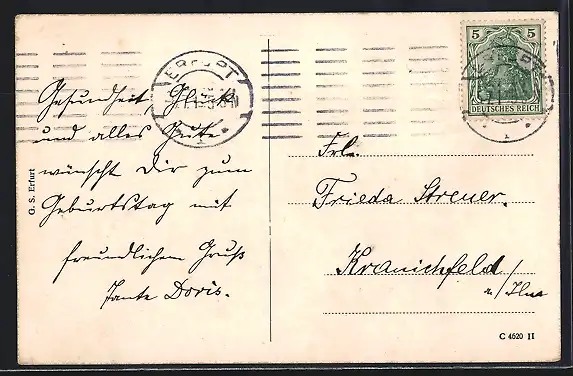 Gesundheit Glück
und alles Gute
wünscht Dir zum
Geburtstag mit
freundlichem Gruß
Tante Doris.
G. S. Erfurt
ERFURT
5 5
DEUTSCHES REICH
Frl.
Frieda Streuer.
Kranichfeld
a/Ilm
C 4620 II